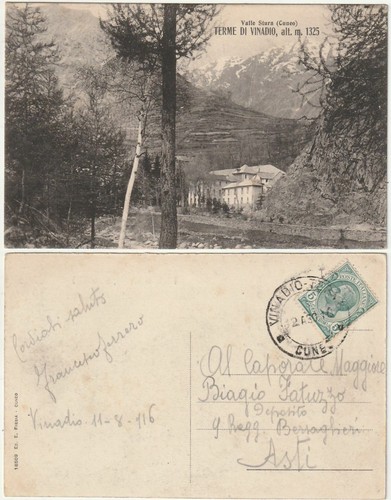 Valle Stura (Cuneo)
TERME DI VINADIO, alt. m. 1325
Cordiali saluti
Francesco
Vinadio 11-8-916
VINADIO
CUNEO
Al Caporale Maggiore
Biagio Fatuzzo
Deposito
9 Regg. Bersaglieri
Asti